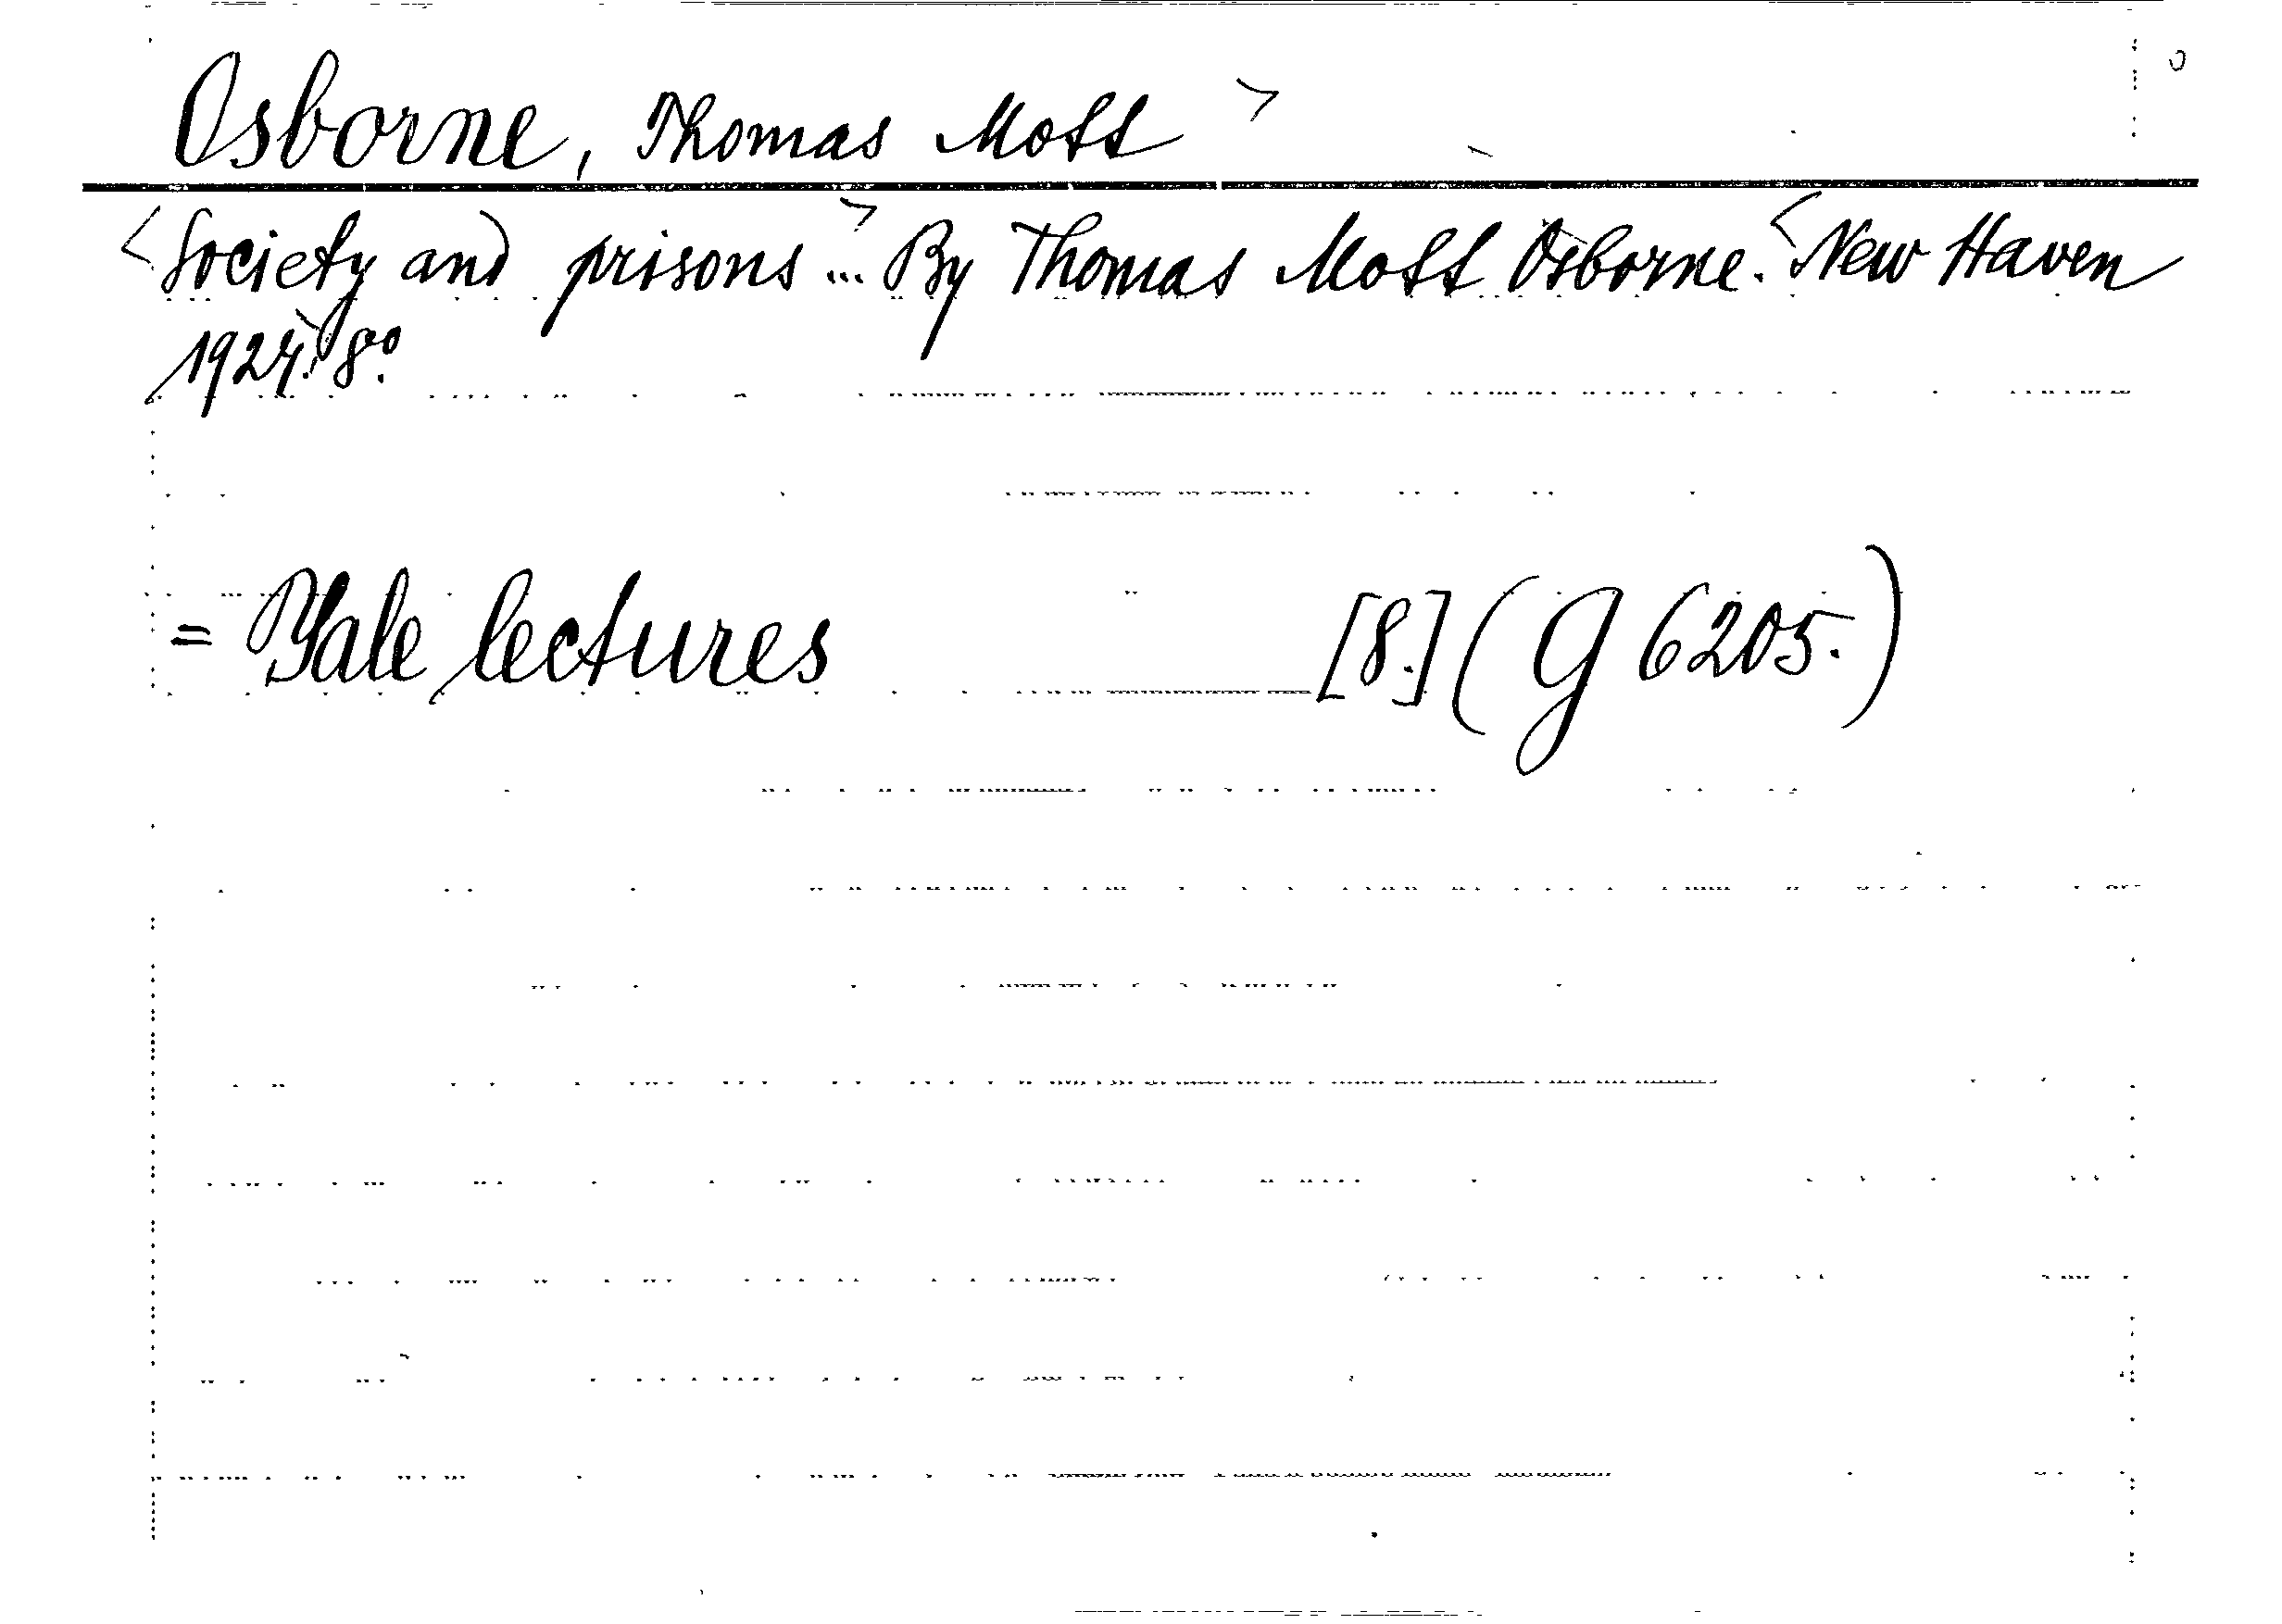 Osborne, Thomas Mott >
<Society and prisons...> By Thomas Mott Osborne. <New Haven
1924.> 8°.
= Yale lectures [8.] (G 6205.)